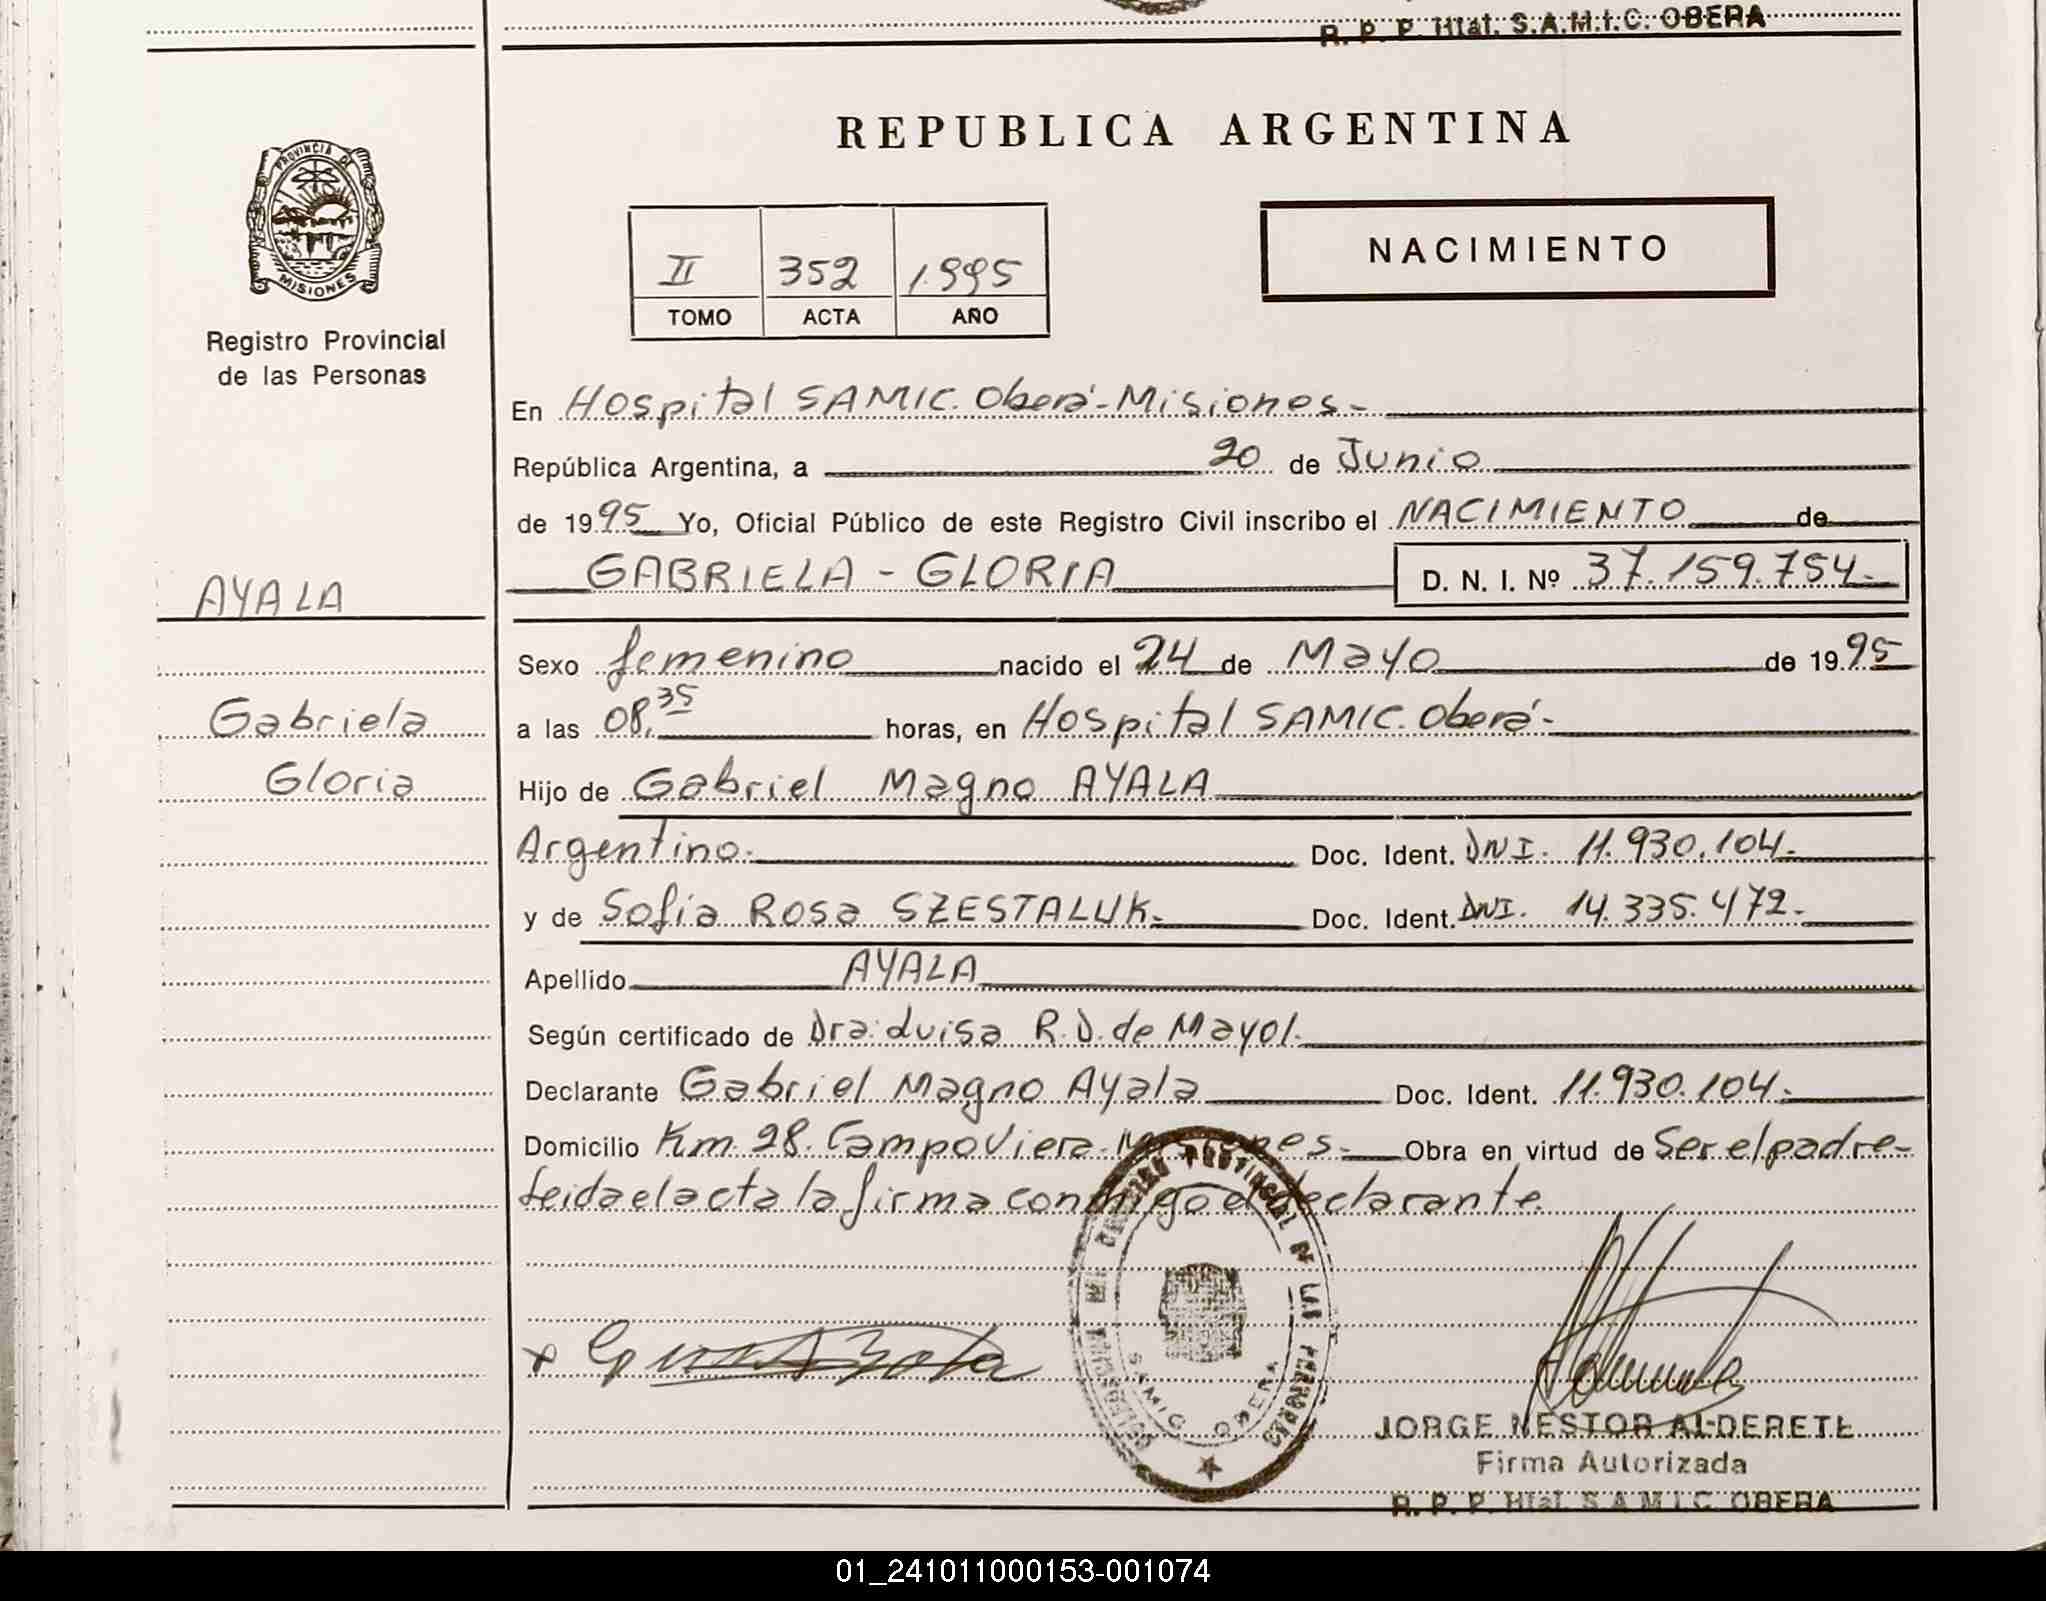 R. P. P. Htal. S.A.M.I.C. OBERA
PROVINCIA DE
MISIONES
Registro Provincial
de las Personas
REPUBLICA ARGENTINA
II 352 1.995
TOMO ACTA AÑO
NACIMIENTO
En Hospital SAMIC. Oberá-Misiones-
República Argentina, a 20 de Junio
de 1995 Yo, Oficial Público de este Registro Civil inscribo el NACIMIENTO de
AYALA
GABRIELA - GLORIA D. N. I. Nº 37.159.754.-
Sexo femenino nacido el 24 de Mayo de 1995
Gabriela
a las 08,35 horas, en Hospital SAMIC. Oberá-
Gloria
Hijo de Gabriel Magno AYALA
Argentino. Doc. Ident. DNI. 11.930.104.-
y de Sofia Rosa SZESTALUK- Doc. Ident. DNI. 14.335.472.-
Apellido AYALA
Según certificado de Dra: Luisa R.D. de Mayol.
Declarante Gabriel Magno Ayala Doc. Ident. 11.930.104.
Domicilio Km. 28. Campo Viera-Misiones- Obra en virtud de Ser el padre-
Leida el acta la firma conmigo el declarante.
SAMIC OBERA
JORGE NESTOR ALDERETE
Firma Autorizada
R. P. P. Htal. S.A.M.I.C. OBERA
01_241011000153-001074